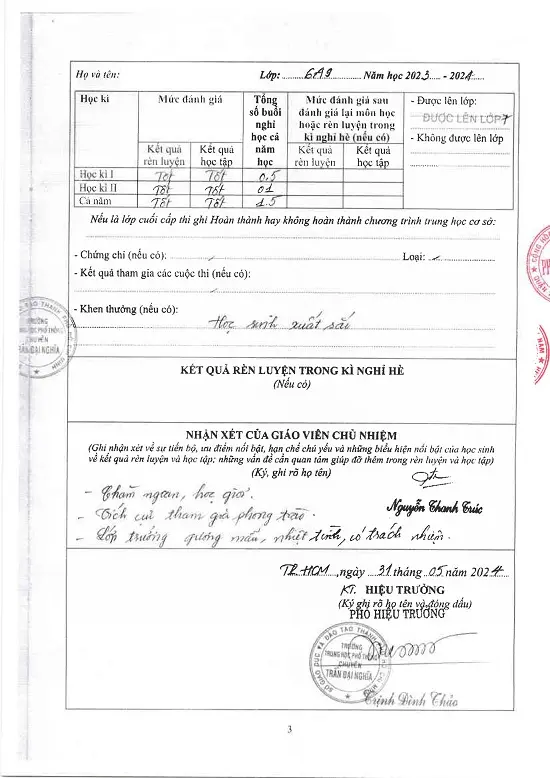 Họ và tên: Lớp: 6A9 Năm học 2023 - 2024
Học kì
Mức đánh giá
Tổng số buổi nghỉ học cả năm học
Mức đánh giá sau đánh giá lại môn học hoặc rèn luyện trong kì nghỉ hè (nếu có)
- Được lên lớp:
ĐƯỢC LÊN LỚP 7
- Không được lên lớp
Kết quả rèn luyện
Kết quả học tập
Kết quả rèn luyện
Kết quả học tập
Học kì I Tốt Tốt 0.5
Học kì II Tốt Tốt 01
Cả năm Tốt Tốt 1.5
Nếu là lớp cuối cấp thì ghi Hoàn thành hay không hoàn thành chương trình trung học cơ sở:
- Chứng chỉ (nếu có): Loại:
- Kết quả tham gia các cuộc thi (nếu có):
- Khen thưởng (nếu có):
Học sinh xuất sắc
TRƯỜNG
TRUNG HỌC PHỔ THÔNG
CHUYÊN
TRẦN ĐẠI NGHĨA
KẾT QUẢ RÈN LUYỆN TRONG KÌ NGHỈ HÈ
(Nếu có)
NHẬN XÉT CỦA GIÁO VIÊN CHỦ NHIỆM
(Ghi nhận xét về sự tiến bộ, ưu điểm nổi bật, hạn chế chủ yếu và những biểu hiện nổi bật của học sinh
về kết quả rèn luyện và học tập; những vấn đề cần quan tâm giúp đỡ thêm trong rèn luyện và học tập)
(Ký, ghi rõ họ tên)
- Chăm ngoan, học giỏi.
Nguyễn Thanh Trúc
- Tích cực tham gia phong trào.
- Lớp trưởng gương mẫu, nhiệt tình, có trách nhiệm.
TP. HCM, ngày 31 tháng 05 năm 2024
KT. HIỆU TRƯỞNG
(Ký ghi rõ họ tên và đóng dấu)
PHÓ HIỆU TRƯỞNG
SỞ GIÁO DỤC VÀ ĐÀO TẠO THÀNH PHỐ HỒ CHÍ MINH
TRƯỜNG
TRUNG HỌC PHỔ THÔNG
CHUYÊN
TRẦN ĐẠI NGHĨA
Trịnh Đình Thảo
3